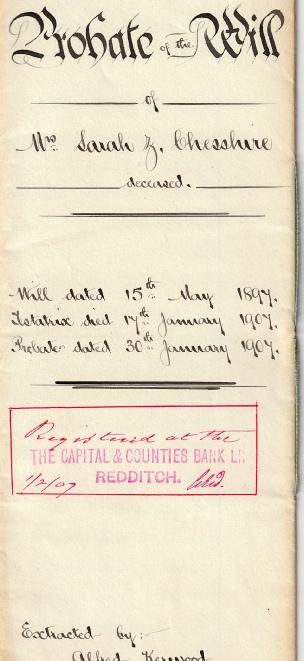 Probate of the Will
of
Mrs Sarah Z. Chesshire
deceased.
Will dated 15th May 1897.
Testatrix died 17th January 1907.
Probate dated 30th January 1907.
Registered at the
THE CAPITAL & COUNTIES BANK LD
1/2/07 REDDITCH.
Extracted by:-
Alfred Kerwood